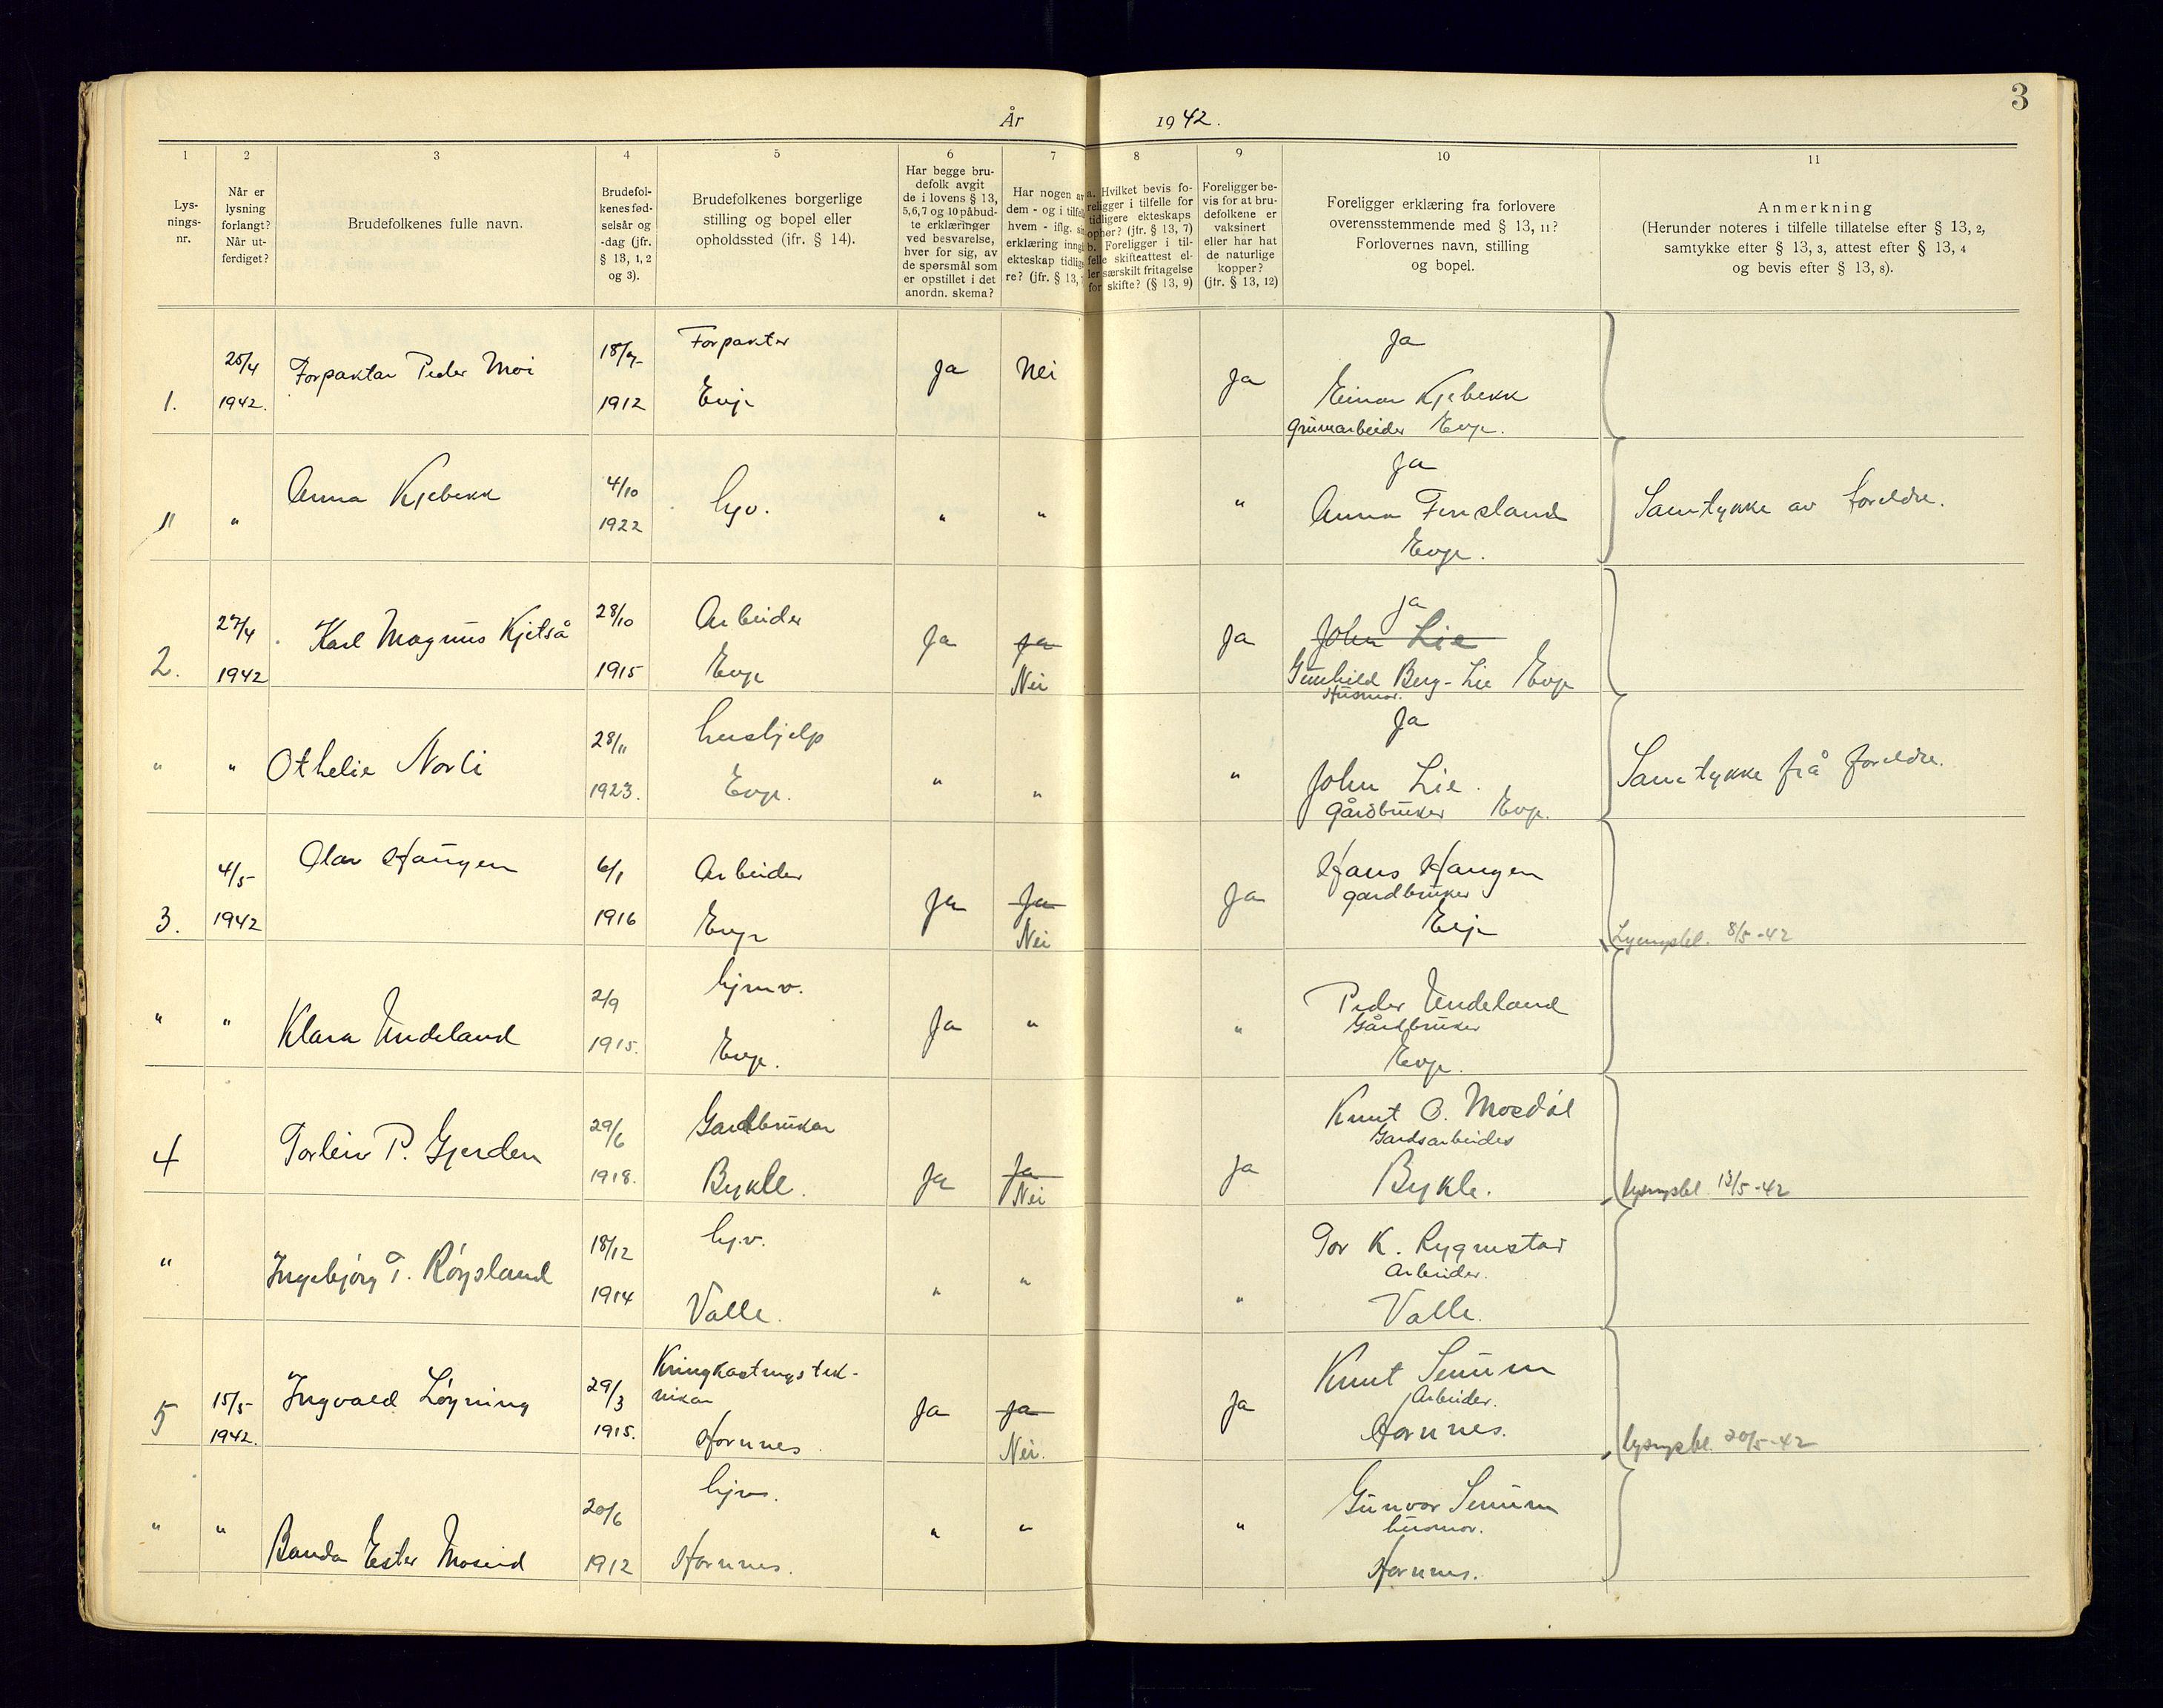 3
År 1942.
1 2 3 4 5 6 7 8 9 10 11
Lys-
nings-
nr.
Når er
lysning
forlangt?
Når ut-
ferdiget?
Brudefolkenes fulle navn.
Brudefol-
kenes fød-
selsår og
-dag (jfr.
§ 13, 1, 2
og 3).
Brudefolkenes borgerlige
stilling og bopel eller
opholdssted (ifr. § 14).
Har begge bru-
defolk avgit
de i lovens § 13,
5, 6, 7 og 10 påbud-
te erklæringer
ved besvarelse,
hver for sig, av
de spørsmål som
er opstillet i det
anordn. skema?
Har nogen av
dem - og i tilfel
hvem - iflg. sin
erklæring inngå
ekteskap tidlige
re? (jfr. § 13,
a. Hvilket bevis fo-
religger i tilfelle for
tidligere ekteskaps
ophør? (jfr. § 13, 7)
b. Foreligger i til-
felle skifteattest el-
ler særskilt fritagelse
for skifte? (§ 13, 9)
Foreligger be-
vis for at bru-
defolkene er
vaksinert
eller har hat
de naturlige
kopper?
(jfr. § 13, 12)
Foreligger erklæring fra forlovere
overensstemmende med § 13, 11?
Forlovernes navn, stilling
og bopel.
Anmerkning
(Herunder noteres i tilfelle tillatelse efter § 13, 2,
samtykke efter § 13, 3, attest efter § 13, 4
og bevis efter § 13, 8).
1.
25/4
1942.
Forpaktar Peder Moi
18/9
1912
Forpakter
Evje
Ja
Nei
Ja
Ja
Einar Kjebekk
Gruvearbeider Evje.
"
"
Anna Kjebekk
4/10
1922
hjv.
"
"
"
Ja
Anna Finsland
Evje.
Samtykke av foreldre.
2.
27/4
1942
Karl Magnus Kjetså
28/10
1915
Arbeider
Evje
Ja
Ja
Nei
Ja
Ja
John Lie
Gunhild Berg-Lie Evje
Husmor.
"
"
Othelie Norli
28/11
1923.
hushjelp
Evje.
"
"
"
Ja
John Lie.
Gårdbruker Evje.
Samtykke frå foreldre.
3.
4/5
1942
Olav Haugen
6/1
1916
Arbeider
Evje
Ja
Ja
Nei
Ja
Hans Haugen
gardbruker
Evje
Lysingsbl. 8/5-42
"
"
Klara Undeland
2/9
1915.
hjemv.
Evje.
Ja
"
"
Peder Undeland
Gårdbruker
Evje.
4
Torleiv P. Gjerden
29/6
1918.
Gardbrukar
Bykle.
Ja
Ja
Nei
Ja
Knut O. Mosdøl
Gardsarbeider
Bykle.
Lysingsbl. 13/5-42
"
Ingebjørg T. Røysland
18/12
1914
hj.v.
Valle.
"
"
"
Tor K. Rygnestad
Arbeider.
Valle.
5
15/5
1942.
Ingvald Løyning
29/3
1915.
Kringkastingstek-
nikar
Hornnes.
Ja
Ja
Nei.
Ja
Knut Senum
Arbeider.
Hornnes.
Lysingsbl. 20/5-42
"
"
Ester Moseid
20/6
1912
hjv.
Hornnes.
"
"
"
Gunvor Senum
husmor.
Hornnes.